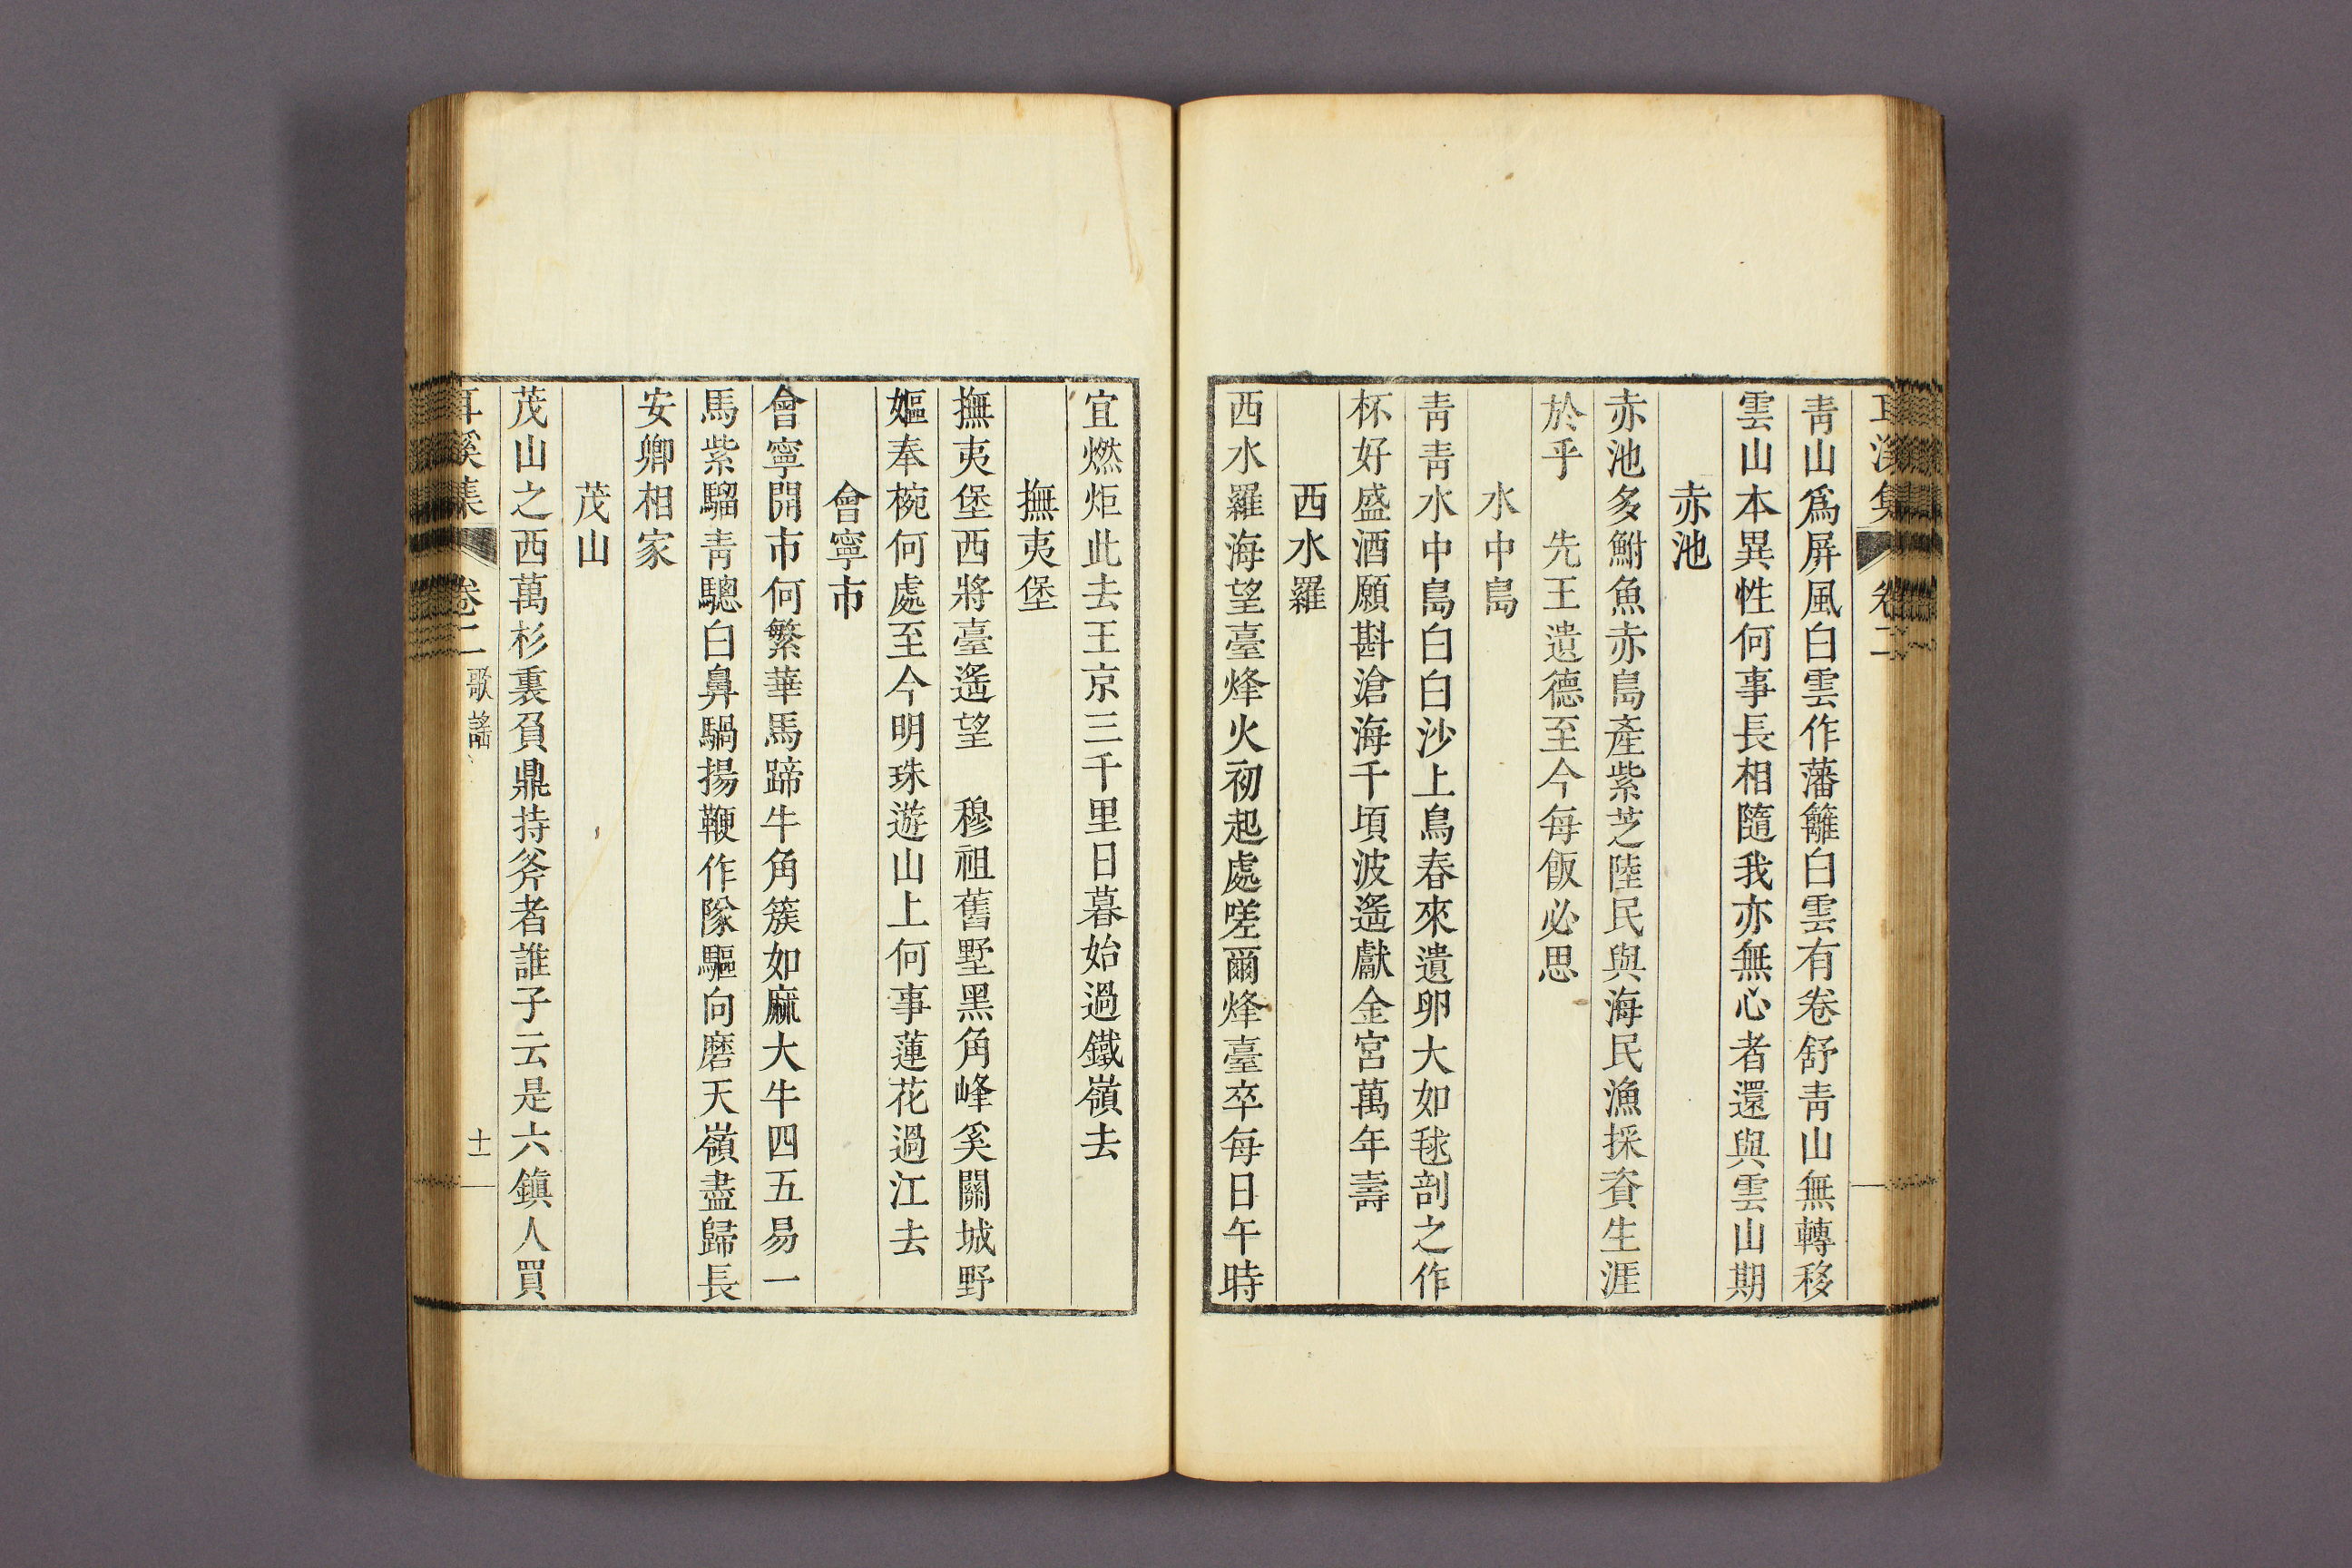 耳溪集 卷二
青山爲屏風白雲作藩籬白雲有卷舒青山無轉移
雲山本異性何事長相隨我亦無心者還與雲山期
赤池
赤池多鮒魚赤島產紫芝陸民與海民漁採資生涯
於乎 先王遺德至今每飯必思
水中島
青青水中島白白沙上鳥春來遺卵大如毬剖之作
杯好盛酒願斟滄海千頃波遙獻金宮萬年壽
西水羅
西水羅海望臺烽火初起處嗟爾烽臺卒每日午時
宜燃炬此去王京三千里日暮始過鐵嶺去
撫夷堡
撫夷堡西將臺遙望 穆祖舊墅黑角峰奚關城野
嫗奉椀何處至今明珠遊山上何事蓮花過江去
會寧市
會寧開市何繁華馬蹄牛角簇如麻大牛四五易一
馬紫騮青驄白鼻騧揚鞭作隊驅向磨天嶺盡歸長
安卿相家
茂山
茂山之西萬杉裏負鼎持斧者誰子云是六鎭人買
耳溪集 卷二 歌謠 十一